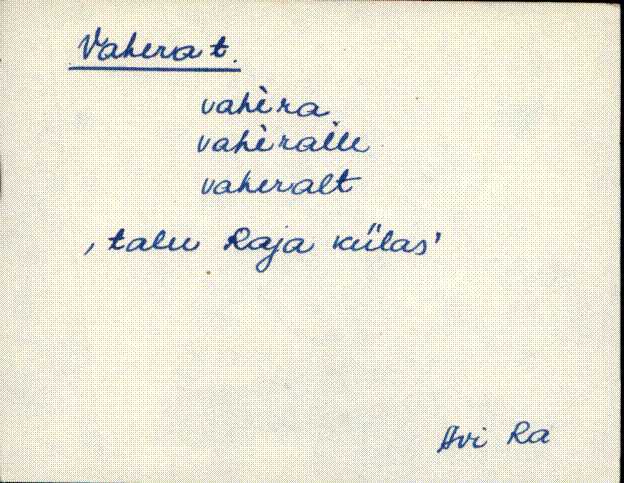 Vahera t.
vahèra
vahèralle
vaheralt
‚talu Raja külas'
Avi Ra